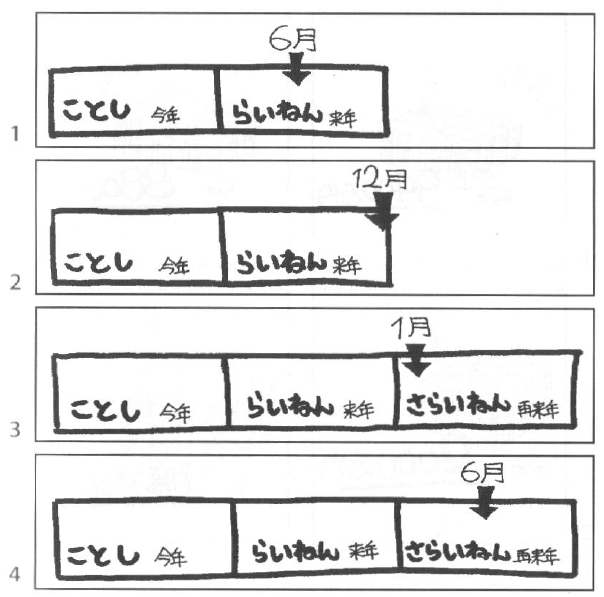 6月
ことし 今年 らいねん 来年
1
12月
ことし 今年 らいねん 来年
2
1月
ことし 今年 らいねん 来年 さらいねん 再来年
3
6月
ことし 今年 らいねん 来年 さらいねん 再来年
4